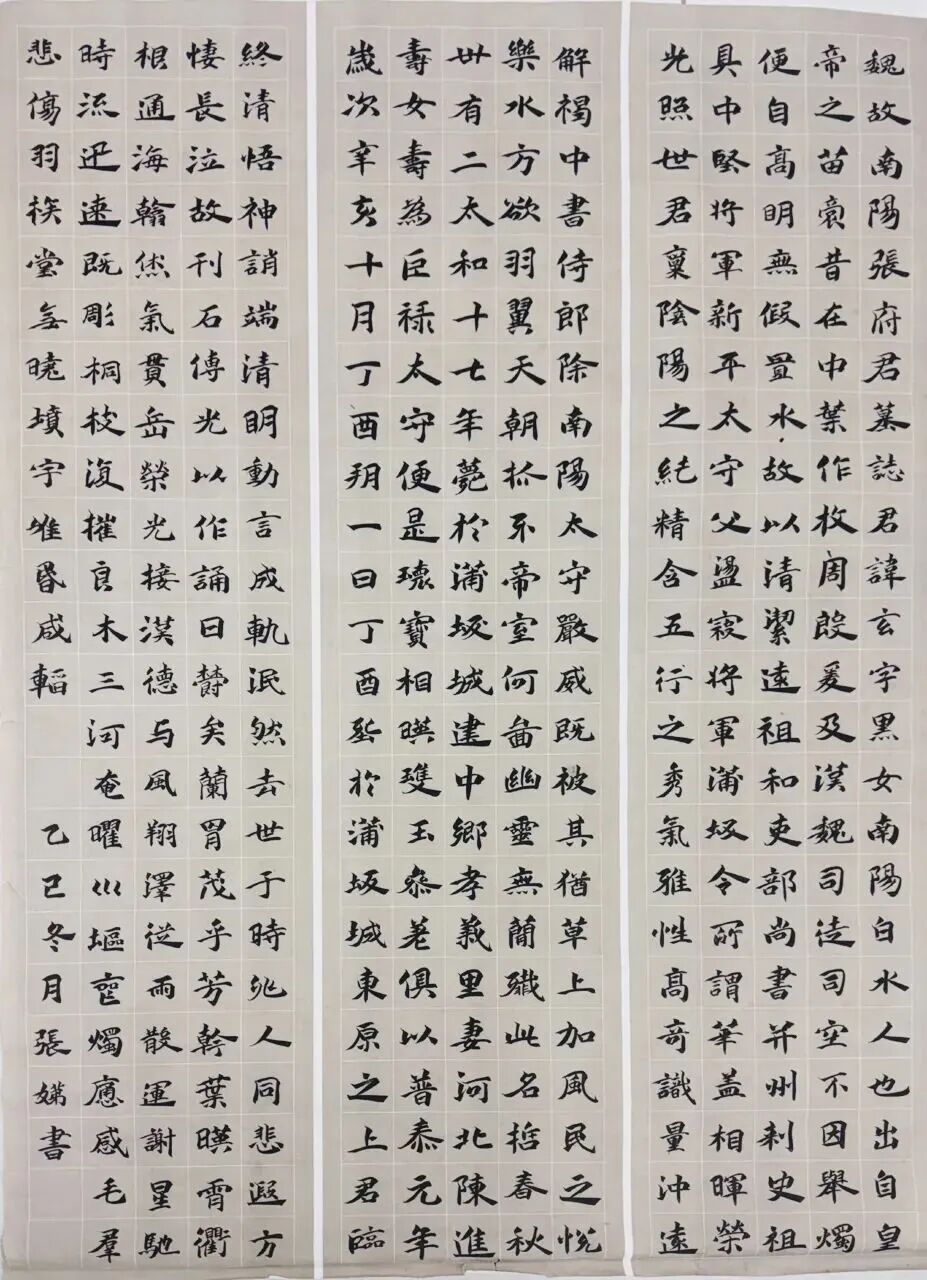 魏故南陽張府君墓誌君諱玄字黑女南陽白水人也出自皇
帝之苗裔昔在中葉作牧周殷爰及漢魏司徒司空不因舉燭
便自高明無假置水故以清潔遠祖和吏部尚書并州刺史祖
具中堅將軍新平太守父盪寇將軍蒲坂令所謂華盖相暉榮
光照世君稟陰陽之純精含五行之秀氣雅性高奇識量沖遠
解褐中書侍郎除南陽太守嚴威既被其猶草上加風民之悅
樂水方欲羽翼天朝抓不帝室何啚幽靈無簡殲此名哲春秋
卅有二太和十七年薨於蒲坂城建中鄉孝義里妻河北陳進
壽女壽為巨祿太守便是瓌寶相暎雙玉參差俱以普泰元年
歲次辛亥十月丁酉朔一日丁酉塟於蒲坂城東原之上君臨
終清悟神誚端清明動言成軌泯然去世于時兆人同悲遐方
悽長泣故刊石傳光以作誦曰欝矣蘭胄茂乎芳幹葉暎霄衢
根通海翰烋氣貫岳榮光接漢德与風翔澤從雨散運謝星馳
時流迅速既彫桐枝復摧良木三河奄曜巛塸燭應感毛羣
悲傷羽族堂無曉墳宇唯昏咸輼
乙巳冬月張娣書